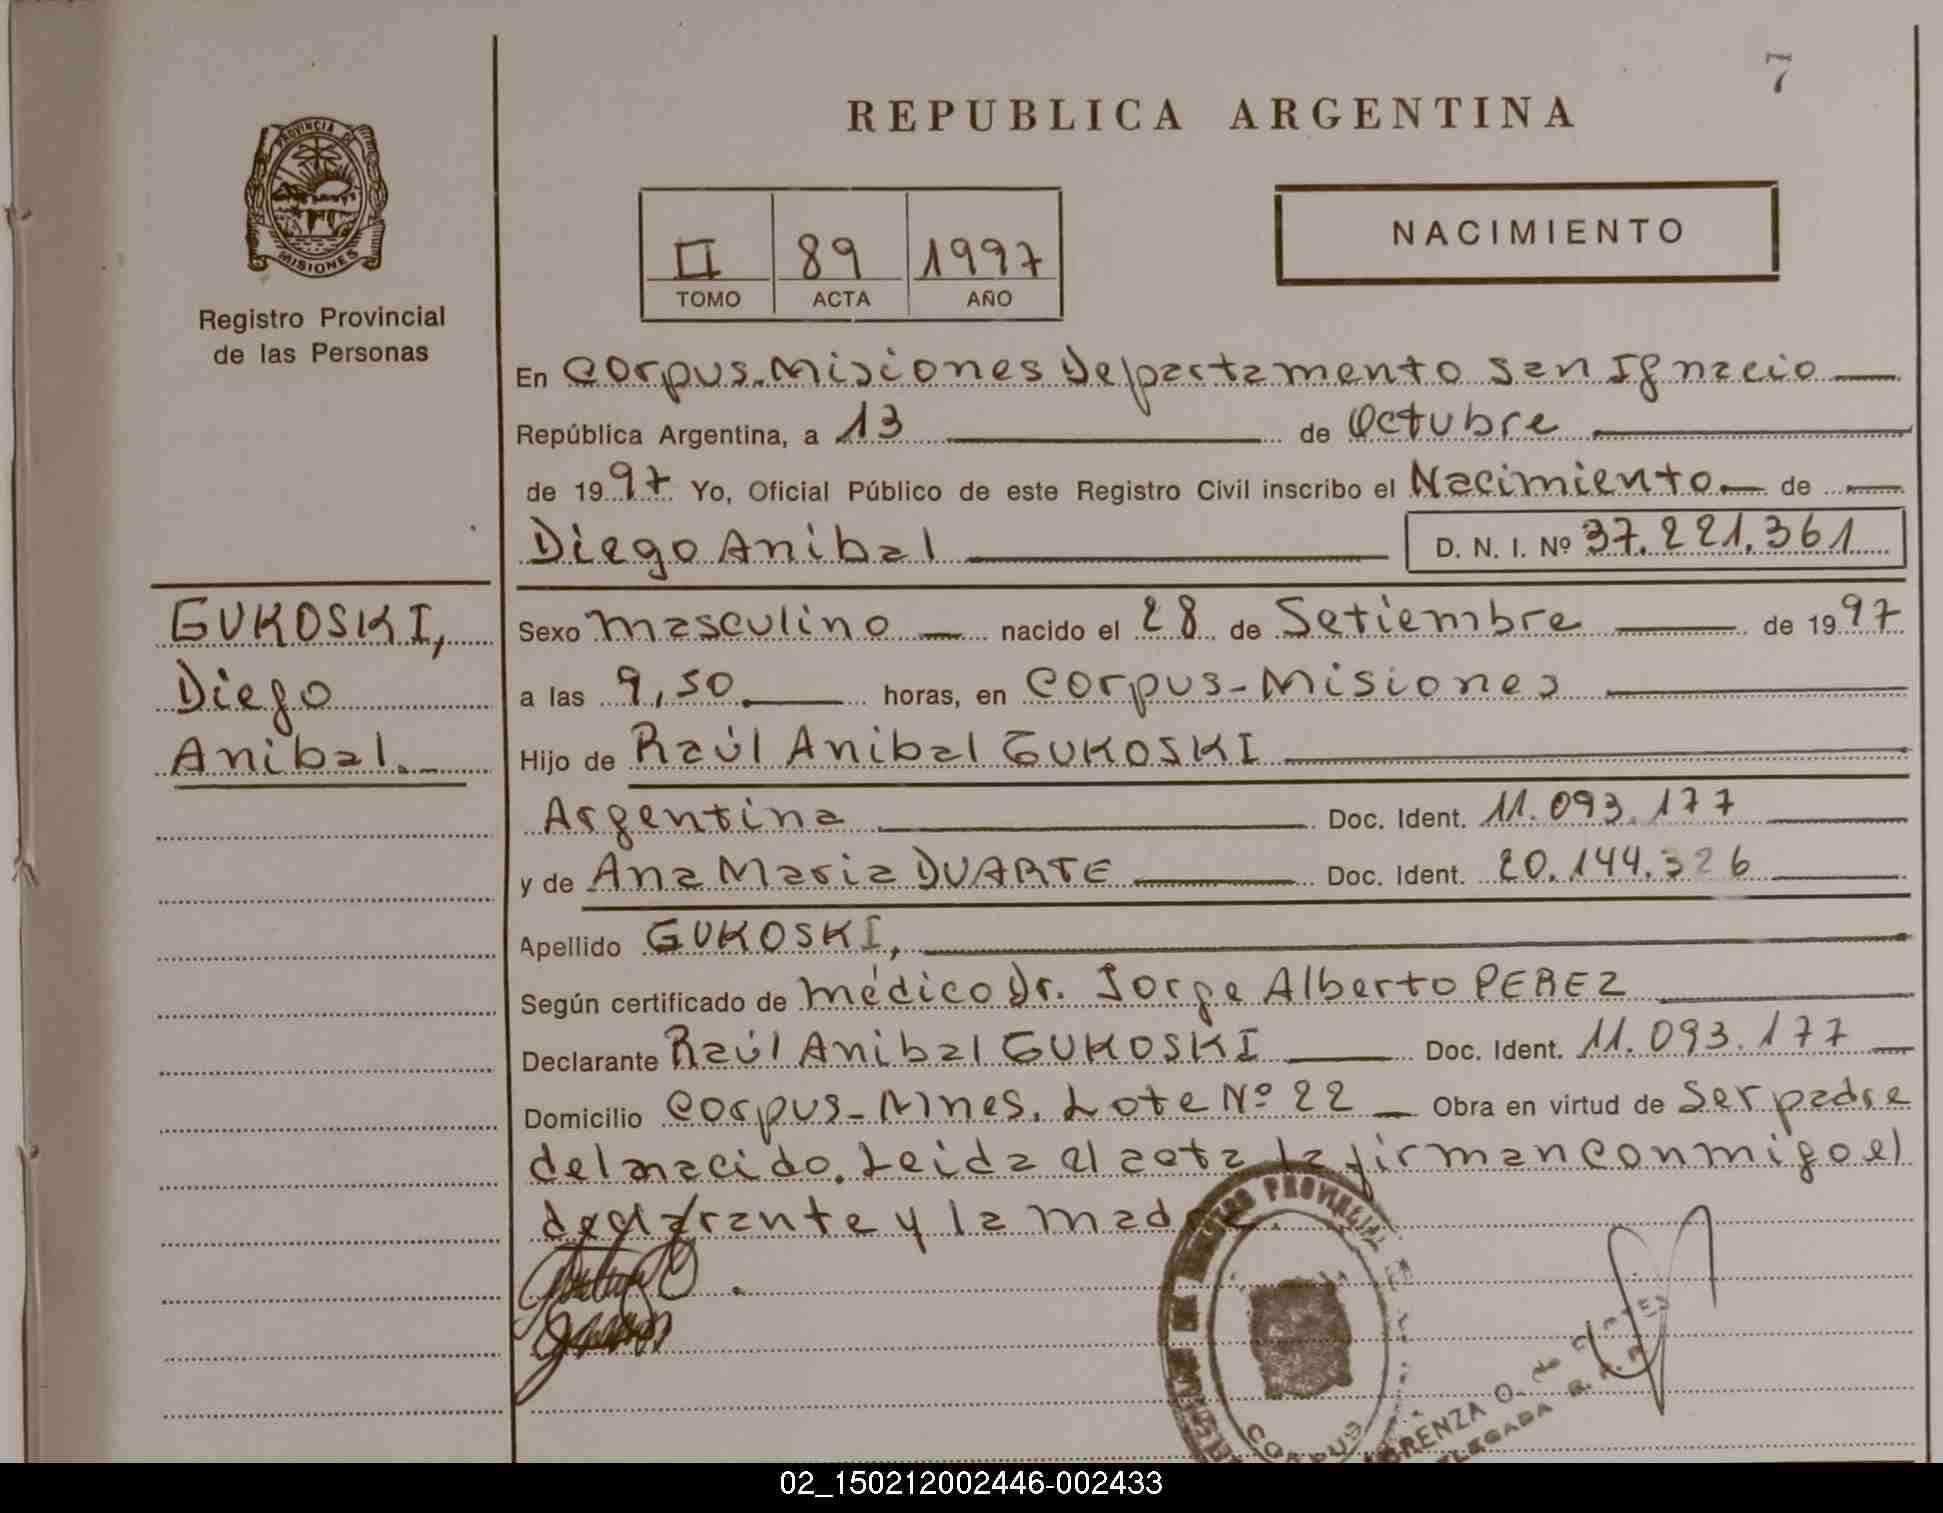 7
REPUBLICA ARGENTINA
PROVINCIA DE
MISIONES
Registro Provincial
de las Personas
II 89 1997
TOMO ACTA AÑO
NACIMIENTO
En Corpus-Misiones Departamento San Ignacio
República Argentina, a 13 de Octubre
de 1997 Yo, Oficial Público de este Registro Civil inscribo el Nacimiento de
Diego Anibal D. N. I. Nº 37.221.361
GUKOSKI,
Diego
Anibal.
Sexo masculino nacido el 28 de Setiembre de 1997
a las 9,50 horas, en Corpus-Misiones
Hijo de Raúl Anibal GUKOSKI
Argentina Doc. Ident. 11.093.177
y de Ana Maria DUARTE Doc. Ident. 20.144.326
Apellido GUKOSKI,
Según certificado de médico Dr. Jorge Alberto PEREZ
Declarante Raúl Anibal GUKOSKI Doc. Ident. 11.093.177
Domicilio Corpus-Mnes. Lote Nº 22 Obra en virtud de ser padre
del nacido. Leida el acta la firman conmigo el
declarante y la madre.
PROVINCIAL
CORPUS
02_150212002446-002433